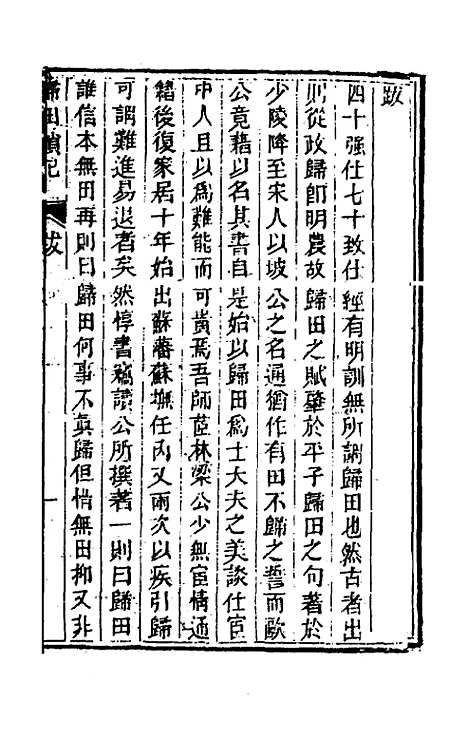 跋
四十强仕七十致仕經有明訓無所謂歸田也然古者出
則從政歸卽明農故歸田之賦肇於平子歸田之句著於
少陵降至宋人以坡公之名通猶作有田不歸之誓而歐
公竟藉以名其書自是始以歸田爲士大夫之美談仕宦
中人且以爲難能而可貴焉吾師茝林梁公少無宦情通
籍後復家居十年始出蘇藩蘇撫任內又兩次以疾引歸
可謂難進易退者矣然惇書竊讀公所撰著一則曰歸田
誰信本無田再則曰歸田何事不眞歸但惜無田抑又非
歸田瑣記
跋
一